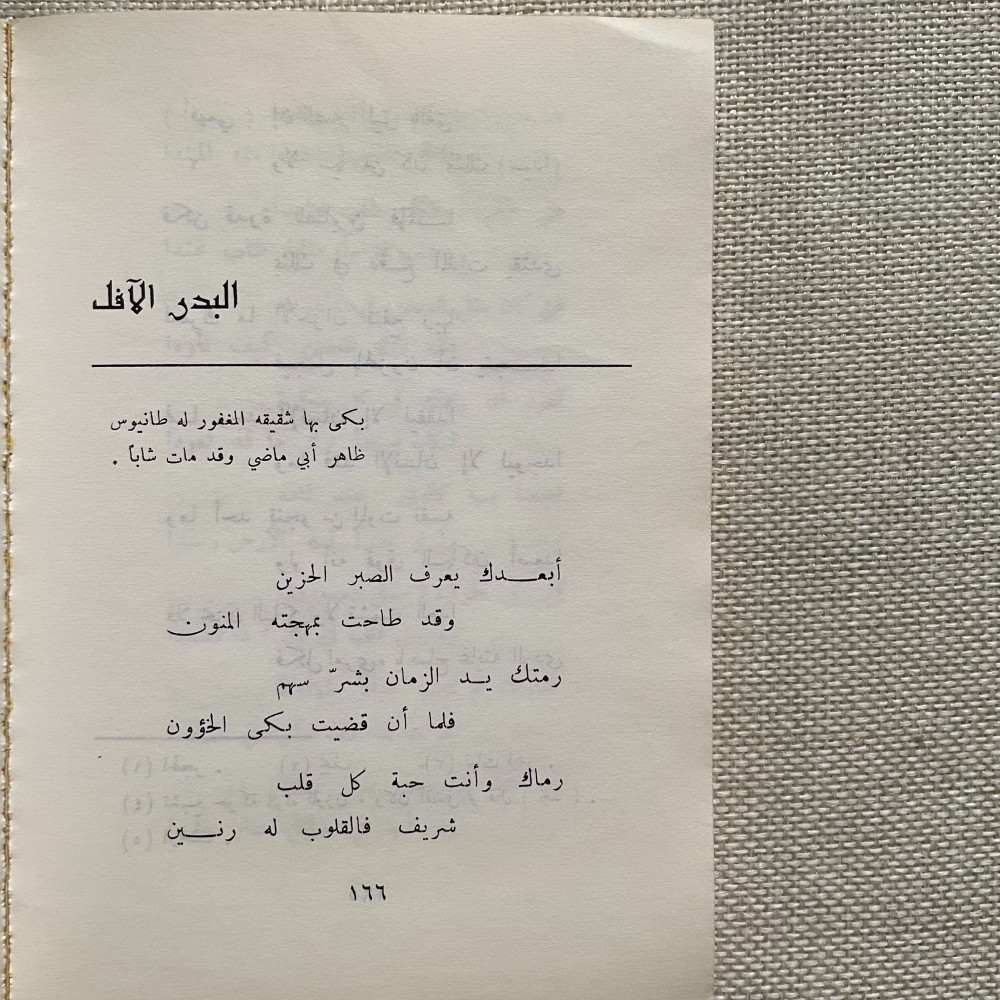 البدر الآفل
بكى بها شقيقه المغفور له طانيوس
ظاهر أبي ماضي وقد مات شاباً .
أبعـــدك يعرف الصبر الحزين
وقد طاحت بمهجته المنون
رمتك يــد الزمان بشرّ سهم
فلما أن قضيت بكى الخؤون
رماك وأنت حبة كل قلب
شريف فالقلوب له رنــين
١٦٦